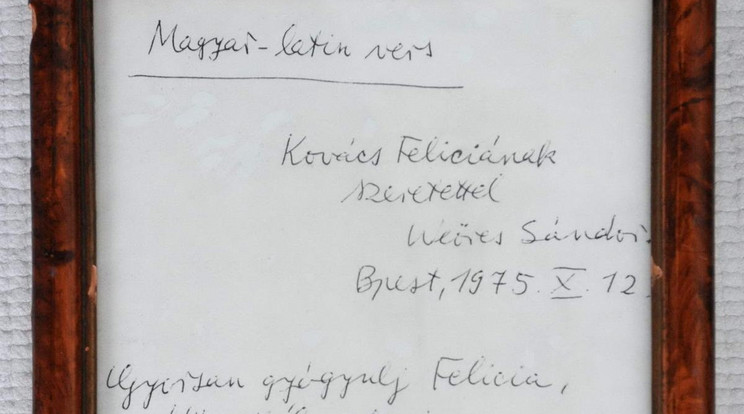 Magyar-latin vers
Kovács Feliciának
szeretettel
Weöres Sándor.
Bpest, 1975. X. 12.
Gyorsan gyógyulj Felicia,